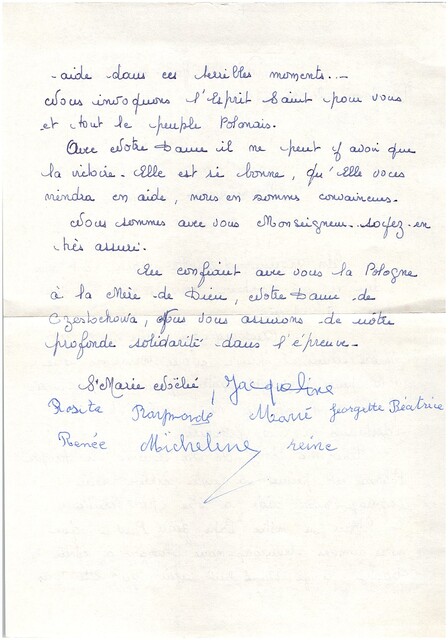 -aide dans ces terribles moments...-
Nous invoquons l'Esprit Saint pour vous
et tout le peuple Polonais.
Avec Notre Dame il ne peut y avoir que
la victoire. Elle est si bonne, qu'Elle vous
viendra en aide, nous en sommes convaincues.
Nous sommes avec vous Monseigneur.. soyez-en
très assuré.
En confiant avec vous la Pologne
à la Mère de Dieu, Notre Dame de
Czestochowa, Nous vous assurons de notre
profonde solidarité dans l'épreuve-
Sr Marie Noëlie, Jacqueline
Rosita Raymonde Marie Georgette Béatrice
Renée Micheline reine